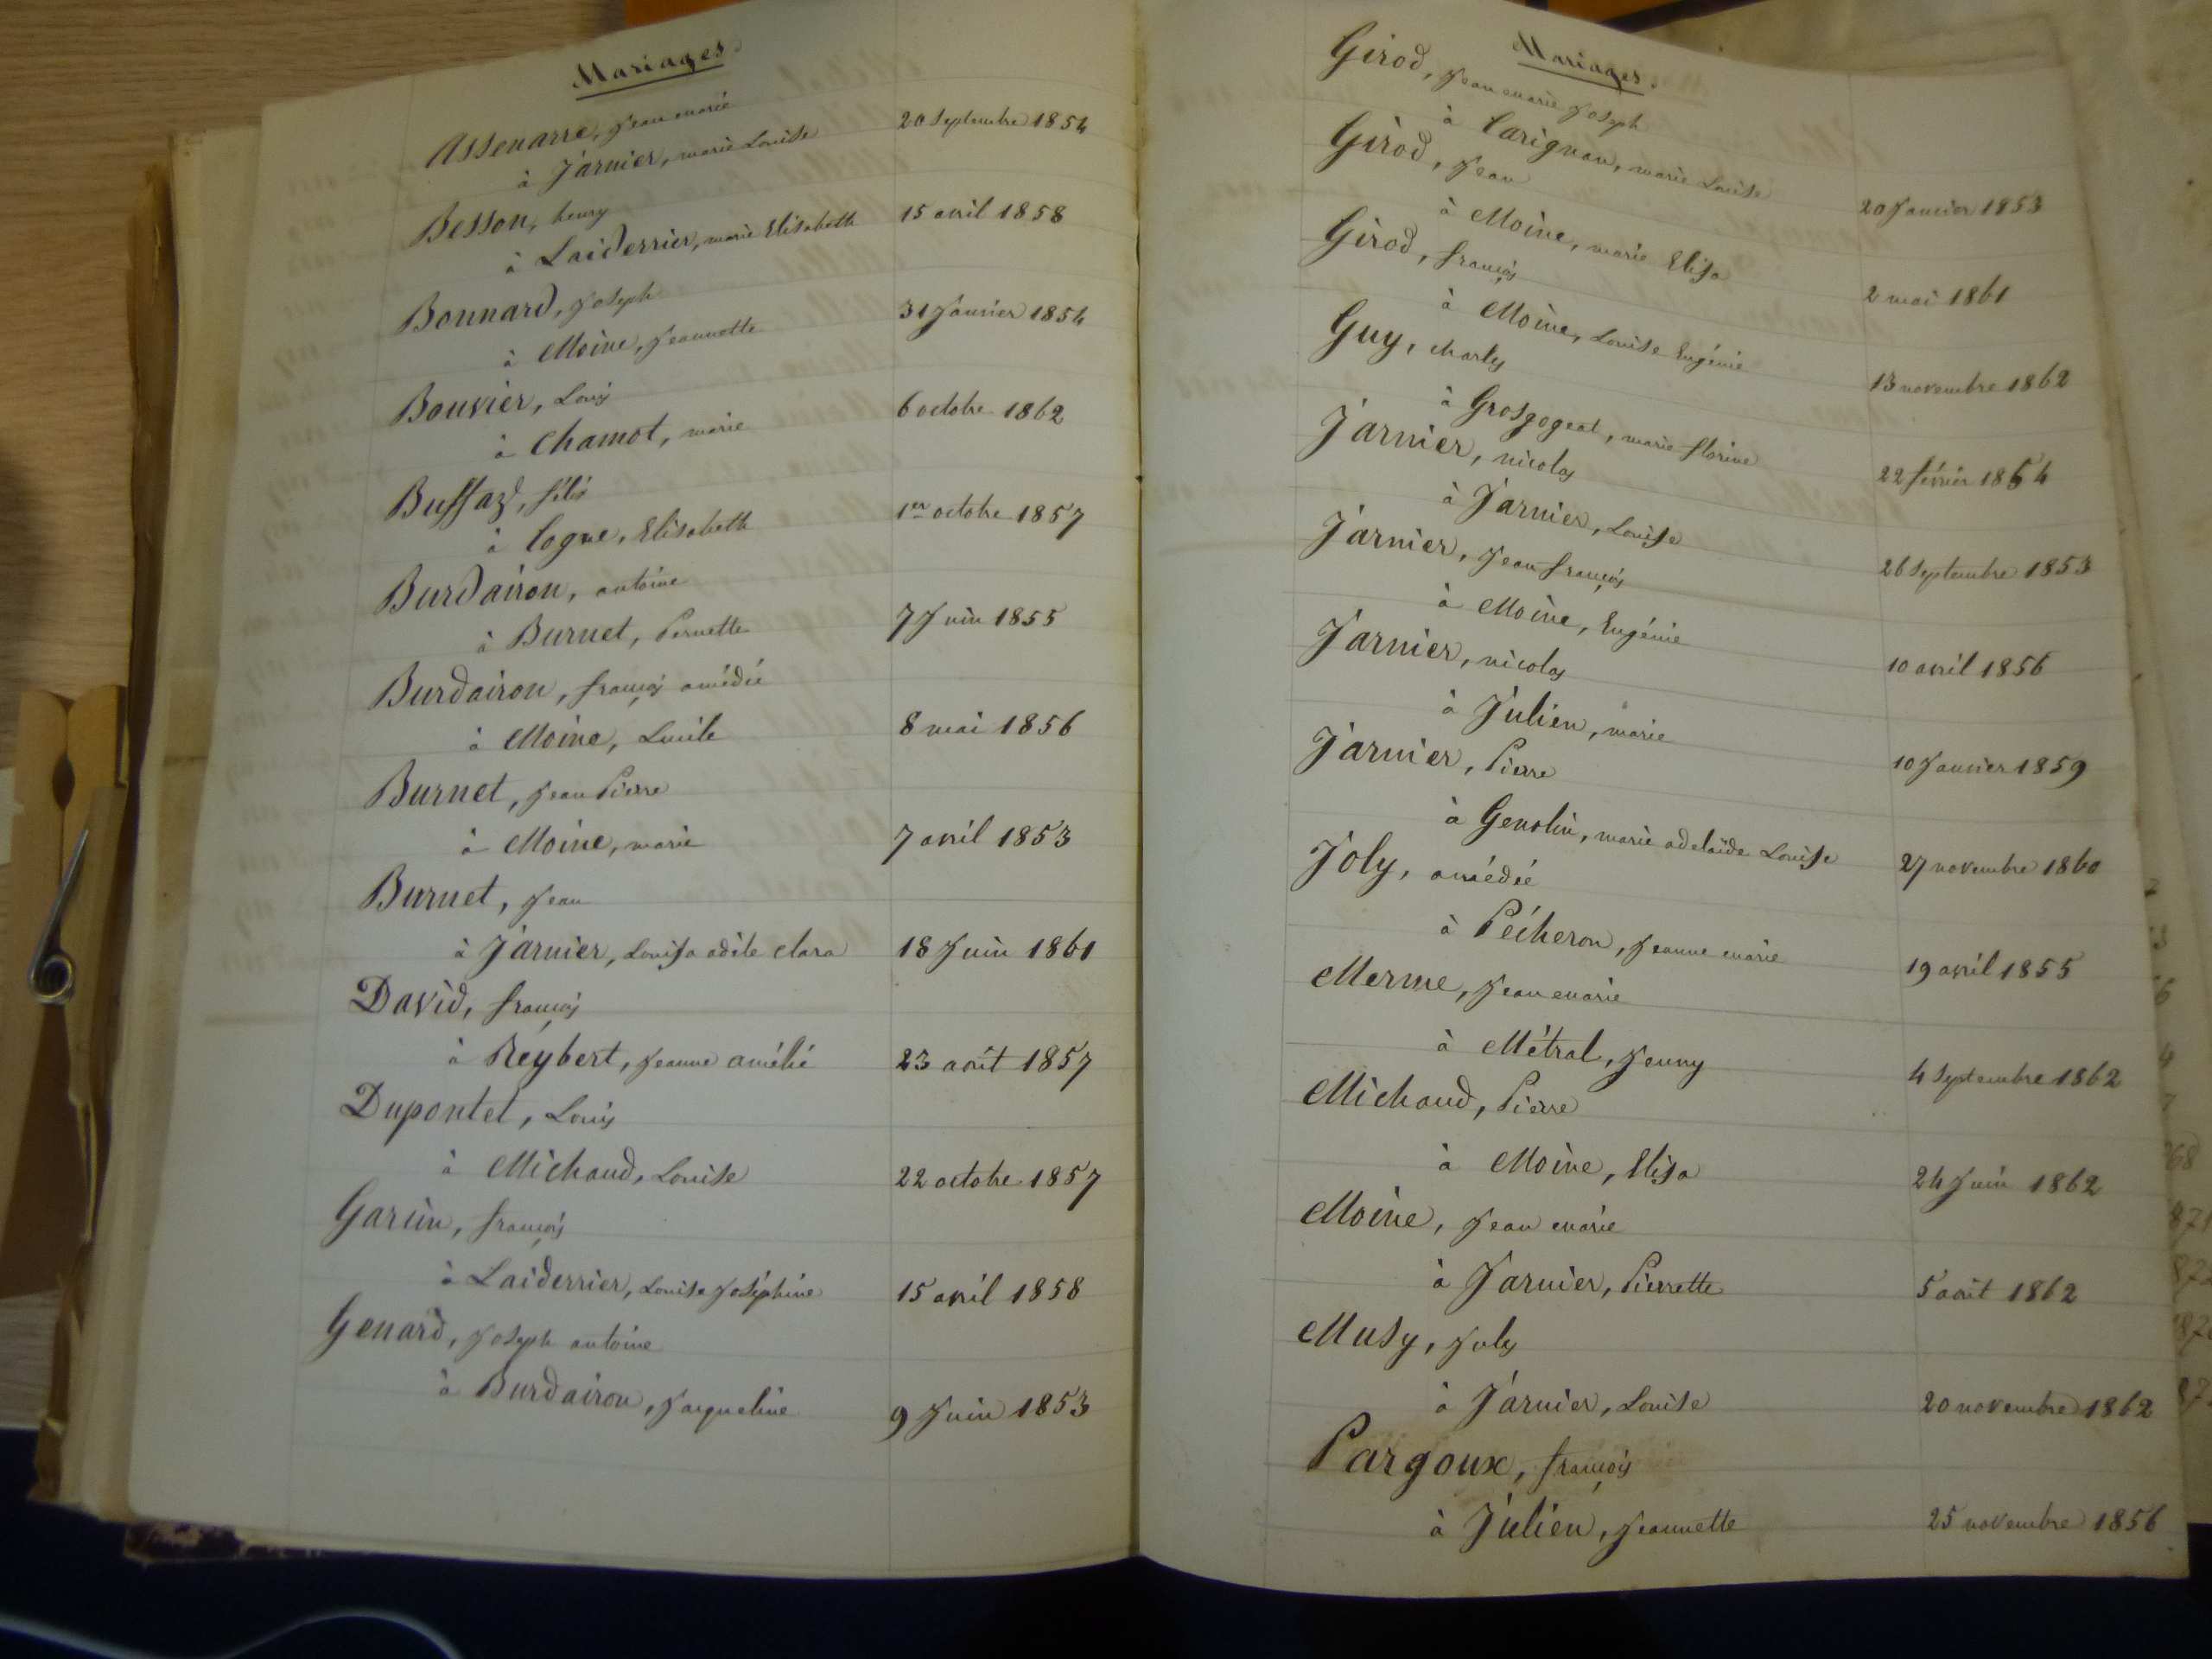 Mariages.
Assenarre, Jean marie
à Jarnier, marie Louise 20 Septembre 1854
Besson, henry
à Laiderrier, marie Elisabeth 15 avril 1858
Bonnard, Joseph
à Moine, Jeannette 31 Janvier 1854
Bouvier, Louis
à Chamot, marie 6 octobre 1862
Buffaz, félix
à Cogne, Elisabeth 1er octobre 1857
Burdairon, antoine
à Burnet, Pernette 7 Juin 1855
Burdairon, françois amédée
à Moine, Lucile 8 mai 1856
Burnet, Jean Pierre
à Moine, marie 7 avril 1853
Burnet, Jean
à Jarnier, Louisa adèle clara 18 Juin 1861
David, françois
à Reybert, Jeanne amélie 23 août 1857
Dupontet, Louis
à Michaud, Louise 22 octobre 1857
Garin, françois
à Laiderrier, Louise Joséphine 15 avril 1858
Genard, Joseph antoine
à Burdairon, Jacqueline 9 Juin 1853
Mariages.
Girod, Jean marie Joseph
à Carignan, marie Louise 20 Janvier 1853
Girod, Jean
à Moine, marie Elisa 2 mai 1861
Girod, françois
à Moine, Louise Eugénie 13 novembre 1862
Guy, charles
à Grosgogeat, marie florine 22 février 1864
Jarnier, nicolas
à Jarnier, Louise 26 Septembre 1853
Jarnier, Jean françois
à Moine, Eugénie 10 avril 1856
Jarnier, nicolas
à Julien, marie 10 Janvier 1859
Jarnier, Pierre
à Genolin, marie adelaïde Louise 27 novembre 1860
Joly, amédée
à Pécheron, Jeanne marie 19 avril 1855
Merme, Jean marie
à Métral, Jenny 4 Septembre 1862
Michaud, Pierre
à Moine, Elisa 24 Juin 1862
Moine, Jean marie
à Jarnier, Pierrette 5 août 1862
Musy, Jules
à Jarnier, Louise 20 novembre 1862
Pargoux, françois
à Julien, Jeannette 25 novembre 1856